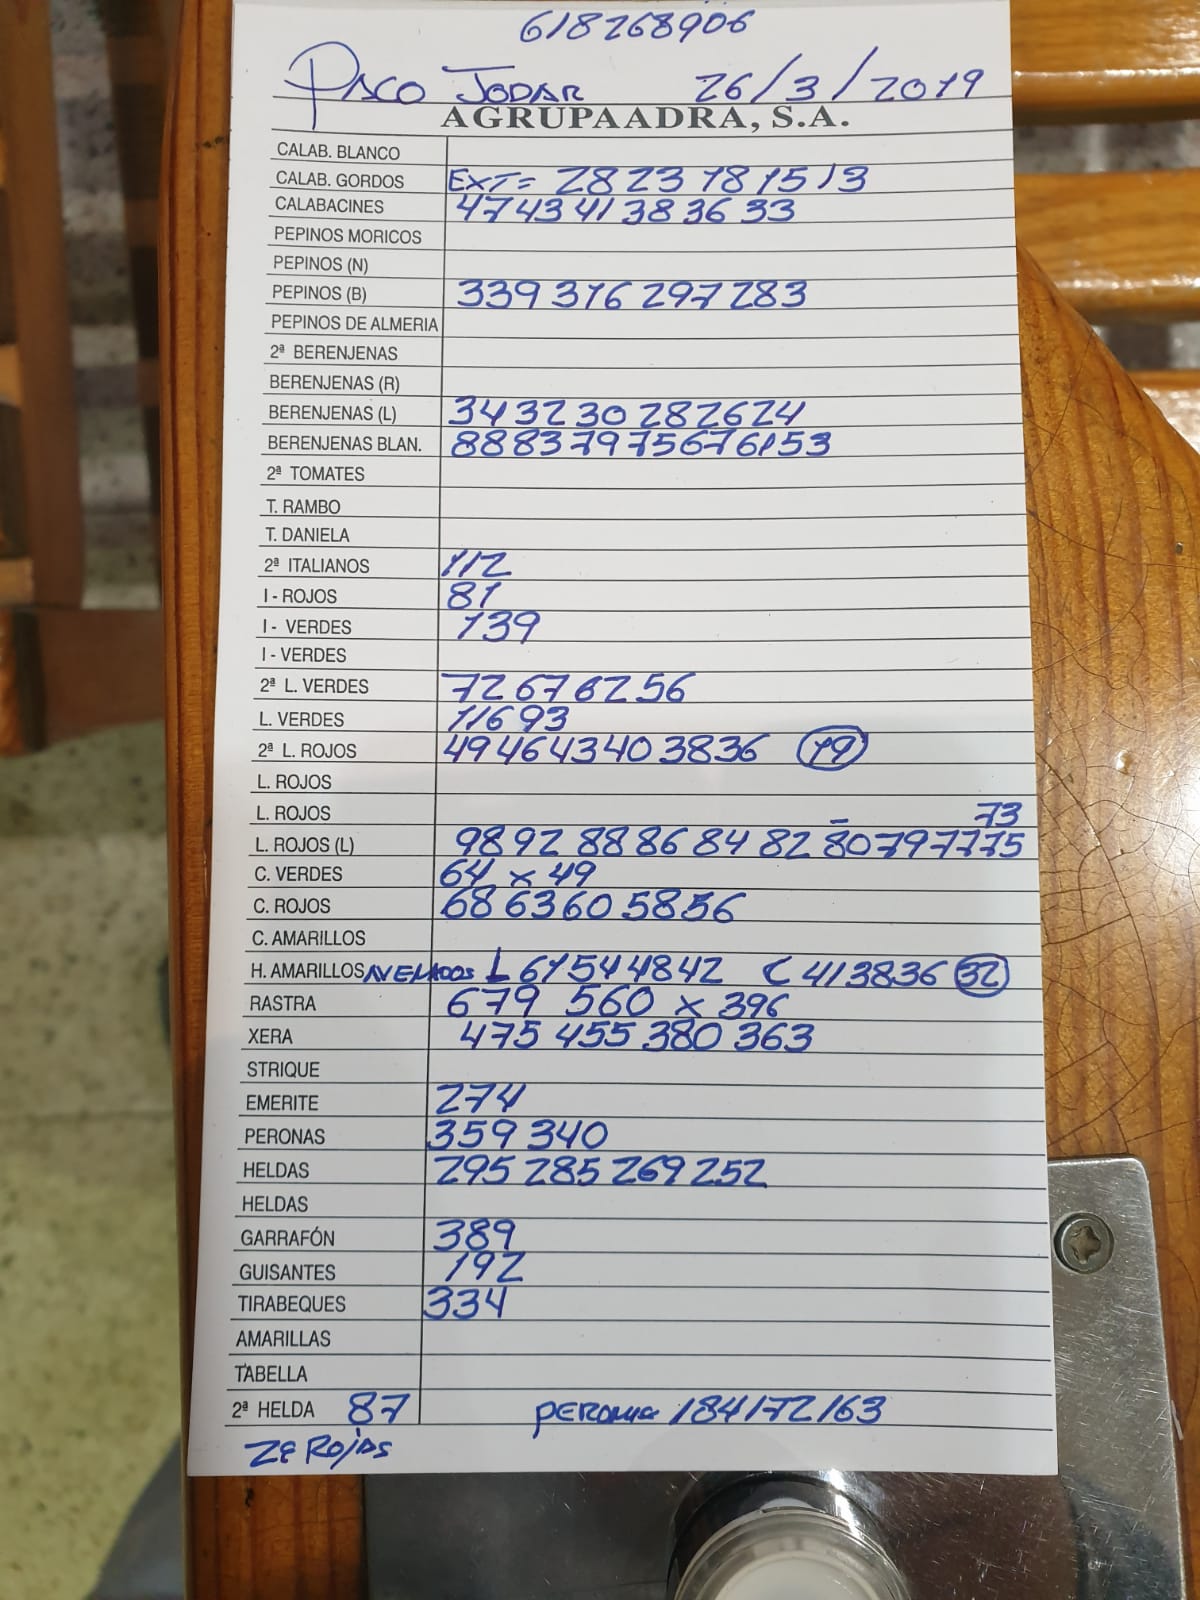 618268906
PACO JODAR 26/3/2019
AGRUPAADRA, S.A.
CALAB. BLANCO
CALAB. GORDOS EXT= 28 23 18 15 13
CALABACINES 47 43 41 38 36 33
PEPINOS MORICOS
PEPINOS (N)
PEPINOS (B) 339 316 297 283
PEPINOS DE ALMERIA
2ª BERENJENAS
BERENJENAS (R)
BERENJENAS (L) 34 32 30 28 26 24
BERENJENAS BLAN. 88 83 79 75 67 61 53
2ª TOMATES
T. RAMBO
T. DANIELA
2ª ITALIANOS 112
I - ROJOS 81
I - VERDES 139
I - VERDES
2ª L. VERDES 72 67 62 56
L. VERDES 116 93
2ª L. ROJOS 49 46 43 40 38 36 19
L. ROJOS
L. ROJOS 73
L. ROJOS (L) 98 92 88 86 84 82 80 79 77 75
C. VERDES 64 x 49
C. ROJOS 68 63 60 58 56
C. AMARILLOS
H. AMARILLOS L 61 54 48 42 C 41 38 36 32
RASTRA 679 560 x 396
XERA 475 455 380 363
STRIQUE
EMERITE 274
PERONAS 359 340
HELDAS 295 285 269 252
HELDAS
GARRAFÓN 389
GUISANTES 192
TIRABEQUES 334
AMARILLAS
TABELLA
2ª HELDA 87 PERONA 184 172 163
ROJAS